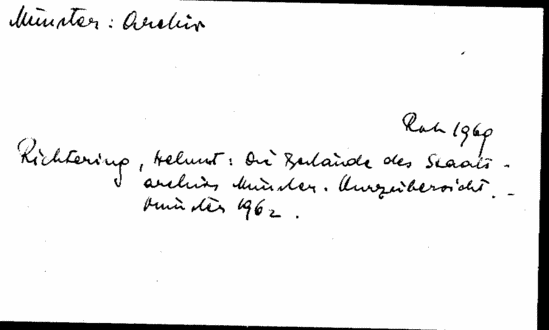 Münster: Archiv
Rok 1969
Richtering, Helmut: Die Bestände des Staats-
archivs Münster. Kurzübersicht. -
Münster 1962.